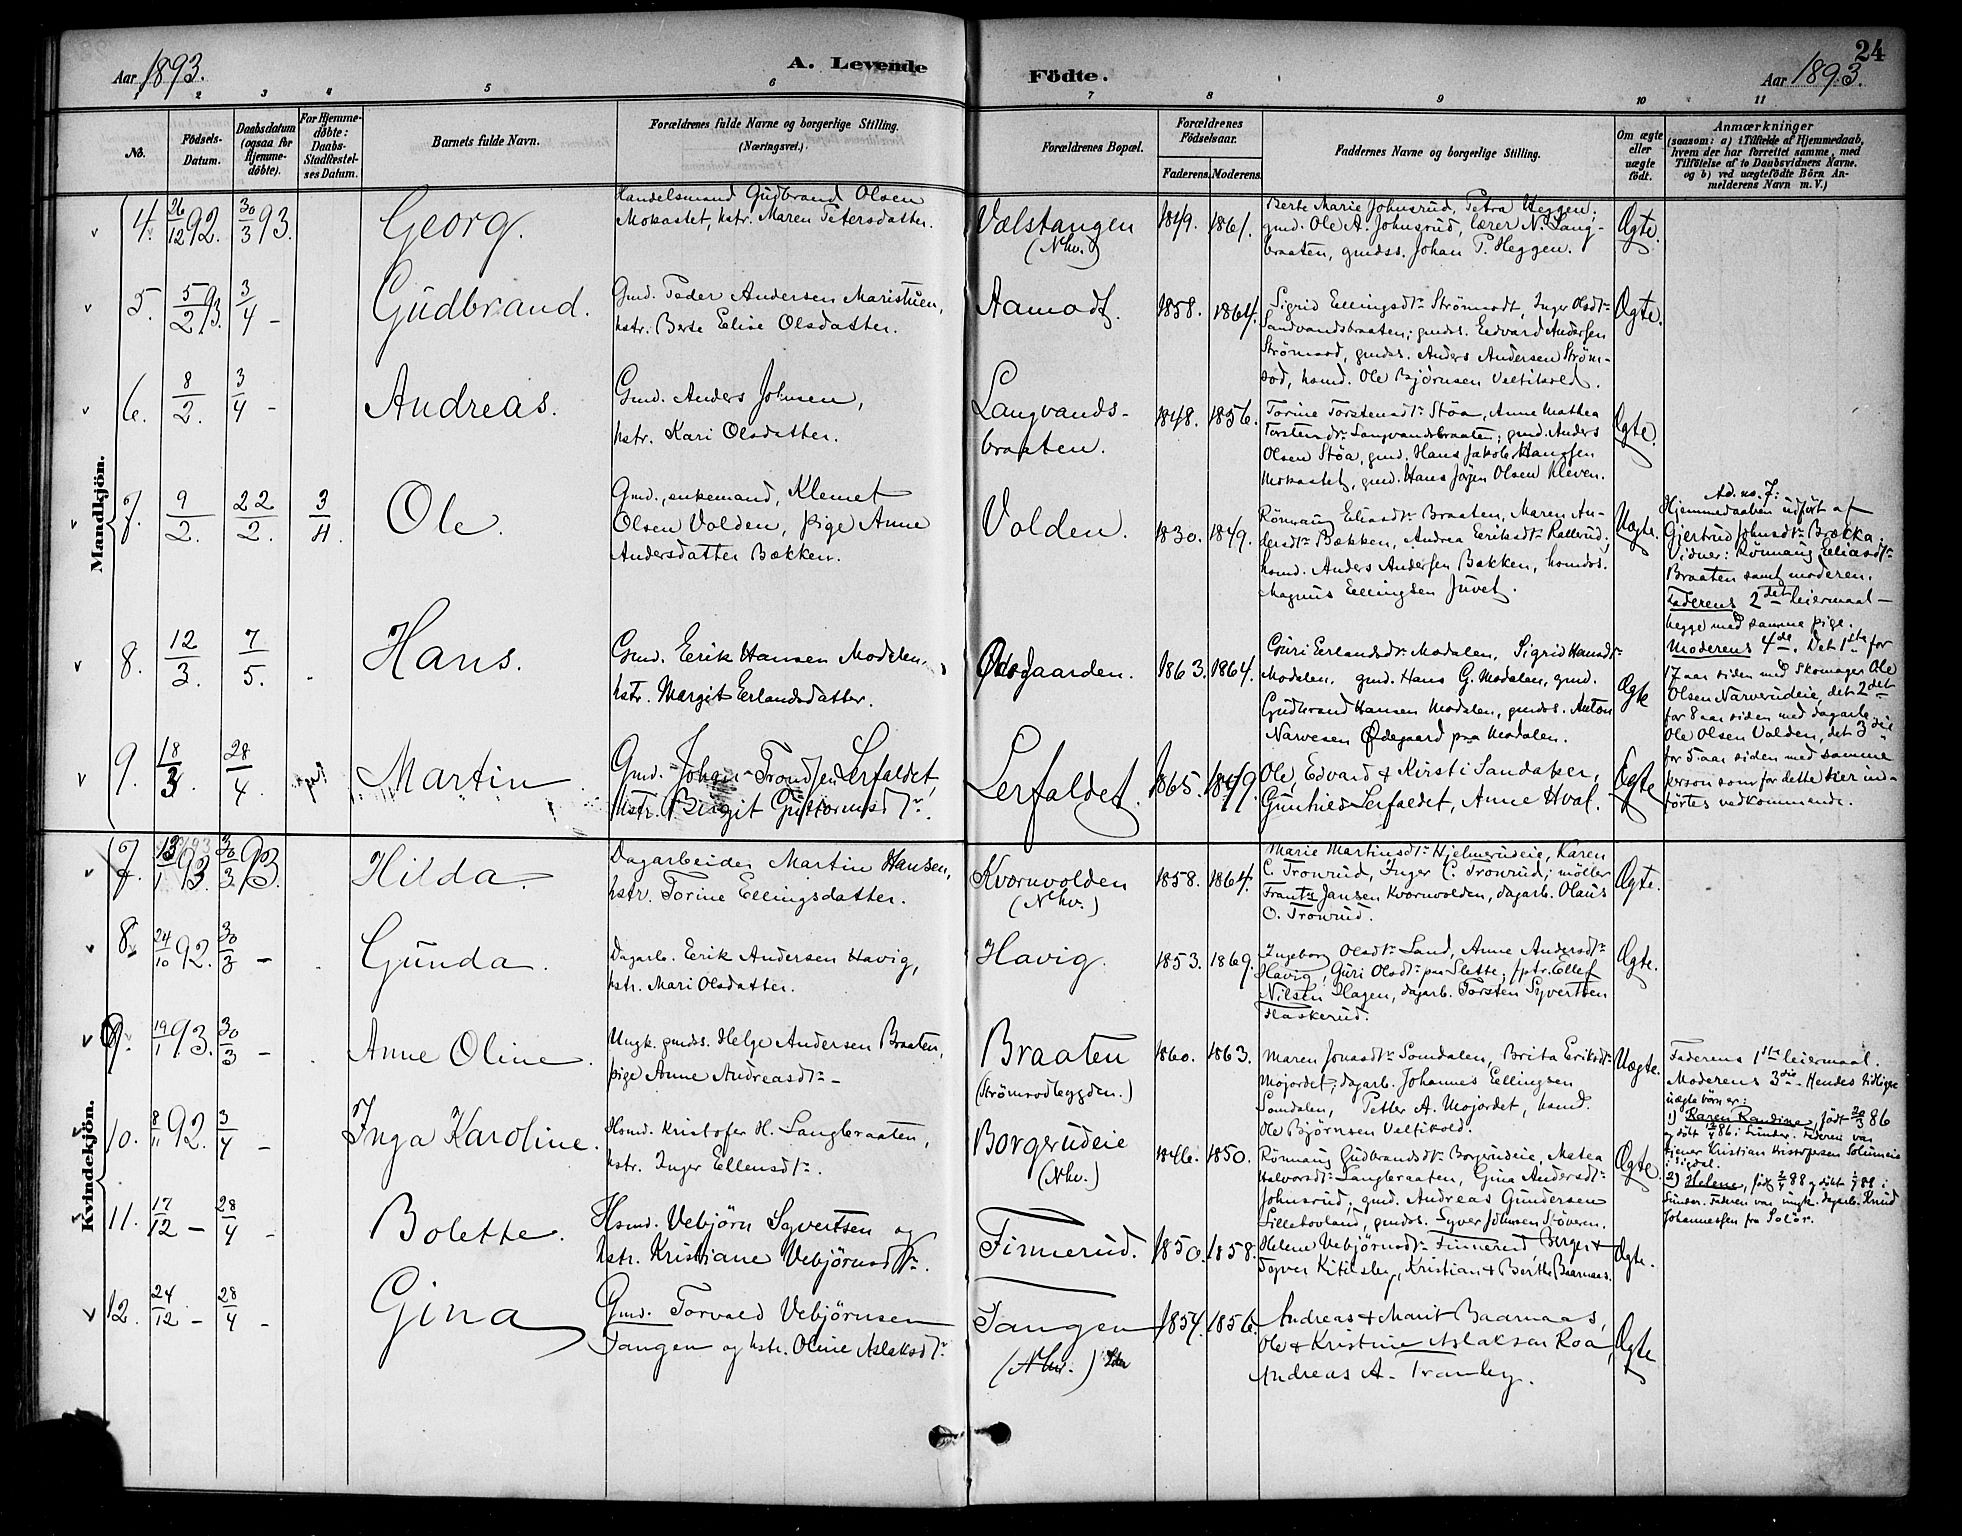 24
Aar 1893.
A. Levende
Födte.
Aar 1893.
1 2 3 4 5 6 7 8 9 10 11
No.
Födsels-
Datum.
Daabsdatum
(ogsaa for
Hjemme-
døbte).
For Hjemme-
døbte:
Daabs-
Stadfæstel-
ses Datum.
Barnets fulde Navn.
Forældrenes fulde Navne og borgerlige Stilling.
(Næringsvei.)
Forældrenes Bopæl.
Forældrenes
Födselsaar.
Faderens. Moderens.
Faddernes Navne og borgerlige Stilling.
Om ægte
eller
uægte
født.
Anmærkninger
(saasom: a) i Tilfælde af Hjemmedaab,
hvem der har forrettet samme, med
Tilföielse af to Daabsvidners Navne,
og b) ved uægtefödte Börn An-
melderens Navn m. V.)
Mandkjön.
4. 26/12 92. 30/3 93.
Georg.
Handelsmand Gudbrand Olsen
Mokastet, hstr. Maren Petersdatter.
Vælstangen
(Nhv.)
1849. 1861.
Berte Marie Johnsrud, Petra Heggen;
gmd. Ole A. Johnsrud, lærer N. Lang-
braaten, gmdss. Johan P. Heggen.
Ægte.
5. 5/2 93. 3/4 -
Gudbrand.
Gmd. Peder Andersen Maristuen,
hstr. Berte Elise Olsdatter.
Aamodt.
1858. 1864.
Sigrid Ellingsdtr. Strömsod, Inger Olsdtr.
Sandvandsbraaten; gmdss. Edvard Andersen
Strömsod, gmdss. Anders Andersen Ström-
sod, hsmd. Ole Björnsen Veltikold.
Ægte.
6. 8/2. 3/4 -
Andreas.
Gmd. Anders Johnsen,
hstr. Kari Olsdatter.
Langvands-
braaten.
1848. 1856.
Torine Torstensdtr. Støa, Anne Mathea
Torstensdtr. Langvandsbraaten; gmd. Anders
Olsen Støa, gmd. Hans Jakob Hanssen
Mokastet, gmd. Hans Jörgen Olsen Kleven.
Ægte.
7. 9/2. 22/2. 3/4.
Ole.
Gmd., enkemand, Klemet
Olsen Volden, pige Anne
Andersdatter Bækken.
Volden.
1830. 1849.
Rönnaug Eliasdtr. Braaten, Maren An-
dersdtr. Bækken, Andrea Eriksdtr. Kallerud;
hsmd. Anders Andersen Bækken, hsmdss.
Magnus Ellingsen Juvet.
Uægte.
Ad. no. 7:
Hjemmedaaben udført af
Gjertrud Johnsdtr. Brækka.
Vidner: Rönnaug Eliasdtr.
Braaten samt moderen.
Faderens 2det leiermaal -
begge med samme pige.
Moderens 4de. Det 1ste for
17 aar siden med Skomager Ole
Olsen Narverudeie, det 2det
for 8 aar siden med dagarb.
Ole Olsen Volden, det 3die
for 5 aar siden med samme
person som for dette her ind-
førtes vedkommende.
8. 12/3. 7/5.
Hans.
Gmd. Erik Hansen Modalen,
hstr. Margit Erlandsdatter.
Ødegaarden.
1863. 1864.
Guri Erlandsdtr. Modalen, Sigrid Hansdtr.
Modalen, gmd. Hans G. Modalen, gmd.
Gudbrand Hansen Modalen, gmdss. Anton
Narvesen Ødegaard paa Modalen.
Ægte
9. 18/3. 28/4.
Martin
Gmd. Johan Trondsen Lerfaldet,
hstr. Birgit Guttormsdtr.
Lerfaldet.
1865. 1849.
Ole, Edvard & Kirsti Sandaker,
Gunhild Lerfaldet, Anne Hval.
Ægte
Kvindekjön.
7. 13/1 93. 30/3 93.
Hilda.
Dagarbeider Martin Hansen,
hstr. Torine Ellingsdatter.
Kvornvolden
(Nhv.)
1858. 1864.
Marie Martinsdtr. Hjelmerudeie, Karen
C. Tronrud, Inger C. Tronrud; möller
Frants Jansen Kvornvolden, dagarb. Olaus
O. Tronrud.
Ægte.
8. 24/10 92. 30/3 -
Gunda.
Dagarb. Erik Andersen Havig,
hstr. Mari Olsdatter.
Havig.
1853. 1869.
Ingeborg Olsdtr. Land, Anne Andersdtr.
Havig, Guri Olsdtr. paa Slette; fptr. Ellef
Nilsen Hagen, dagarb. Torsten Syvertsen
Haskerud.
Ægte.
9. 19/1 93. 30/3 -
Anne Oline.
Ungk. gmdss. Helge Andersen Braaten,
pige Anne Andreasdtr. -
Braaten
(Strömsodbygden.)
1860. 1863.
Maren Jonasdtr. Somdalen, Brita Eriksdtr.
Mojordet; dagarb. Johannes Ellingsen
Somdalen, Petter A. Mojordet, hsmd.
Ole Björnsen Veltikold.
Uægte.
Faderens 1ste leiermaal.
Moderens 3die. Hendes tidligere
uægte börn er:
1) Karen Randine, født 30/3 86
og døbt 12/4 86 i Sunder. Faderen var
tjener Kristian Kristofersen Solumeie
i Sigdal.
2) Helene, født 2/4 88 og døbt 1/7 88 i
Sunder. Faderen var ungk. dagarb. Knud
Johannessen fra Solör.
10. 8/11 92. 3/4 -
Inga Karoline.
Hsmd. Kristofer H. Langbraaten,
hstr. Inger Ellensdtr.
Borgerudeie
(Nhv.)
1846. 1850.
Rönnaug Gudbrandsdtr. Borgerudeie, Matea
Halvorsdtr. Langbraaten, Gina Andersdtr.
Johnsrud, gmd. Andreas Gundersen
Lillehovland, gmdss. Syver Johnsen Stöveren.
Ægte.
11. 17/12 - 28/4 -
Bolette.
Hsmd. Vebjörn Syvertsen og
hstr. Kristiane Vebjörnsdtr.
Finnerud.
1850. 1858.
Helene Vebjörnsdtr. Finnerud, Berger &
Syver Kitilsby, Kristian & Berthe Baarnaas.
Ægte.
12. 24/12 - 28/4 -
Gina
Gmd. Torvald Vebjörnsen
Tangen og hstr. Oline Aslaksdtr.
Tangen
(Nhv.)
1854. 1856.
Andreas & Marit Baarnaas,
Ole & Kristine Aslaksen Roa,
Andreas A. Tranby.
Ægte